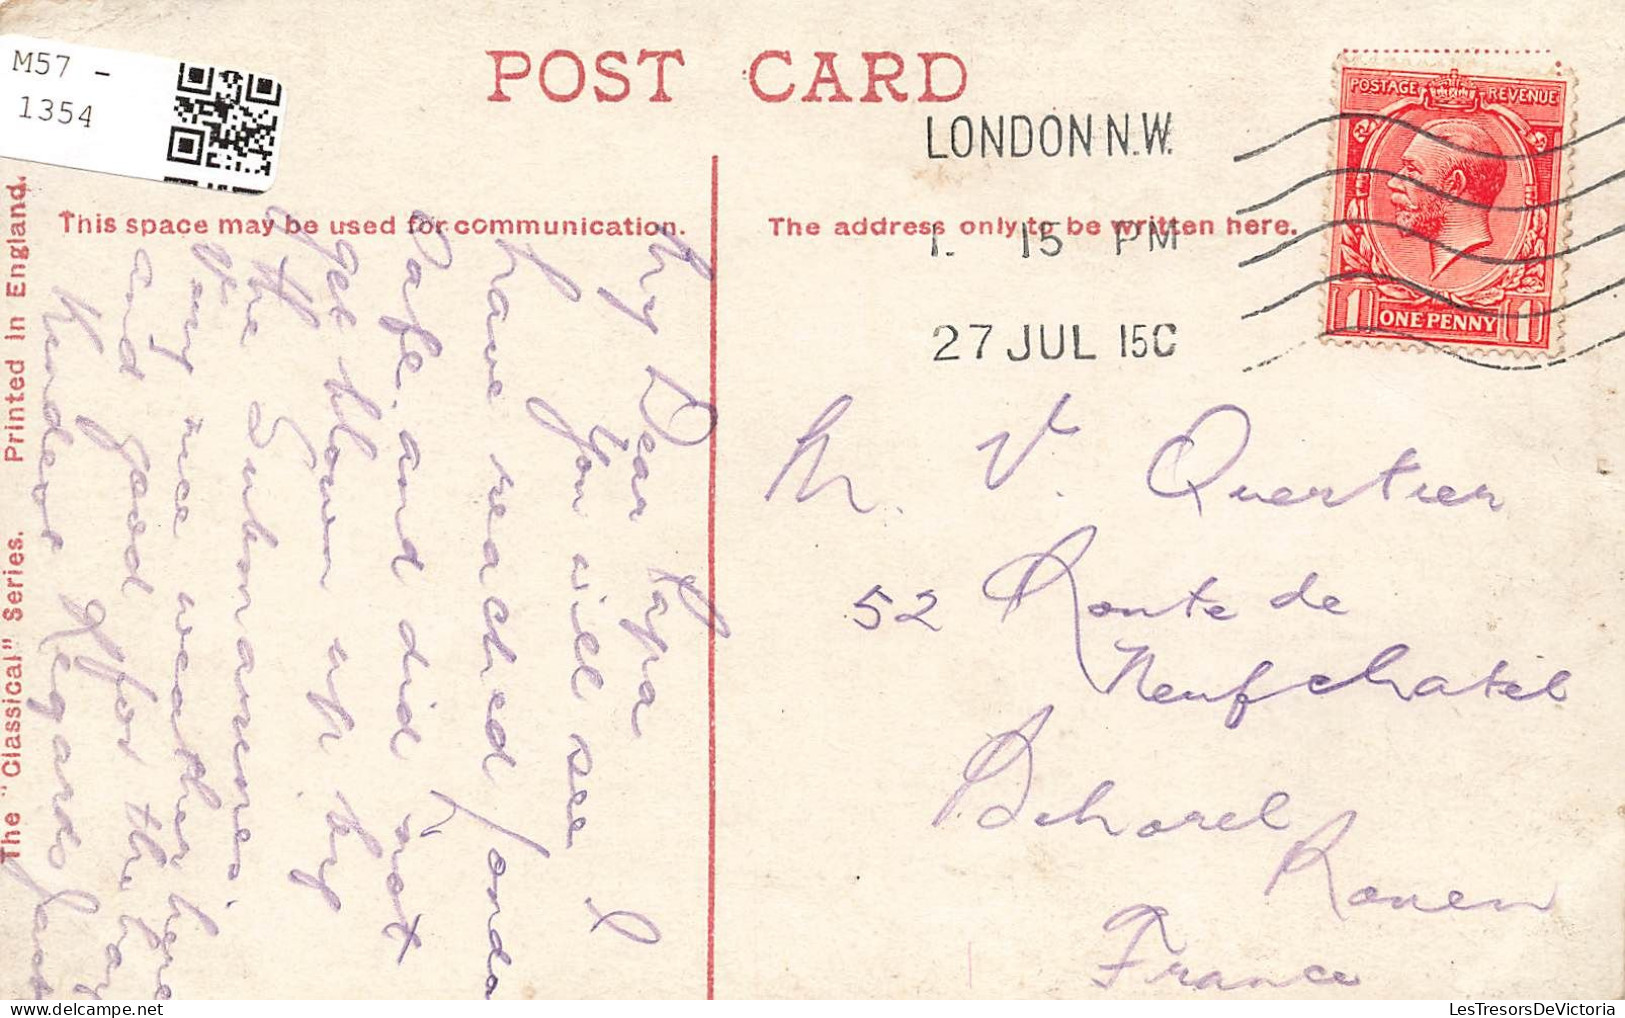 M57 -
1354
POST CARD
LONDON N.W.
1. 15 PM
27 JUL 15C
POSTAGE REVENUE
1 ONE PENNY 1
This space may be used for communication.
The address only to be written here.
The "Classical" Series. Printed in England.
My Dear Papa
You will see I
have reached London
safe. and did not
get blown up by
the Submarines.
Very nice weather here
and good for the hay
Kindest Regards
M. V. Quertier
52 Route de
Neufchatel
Bihorel
Rouen
France
LesTresorsDeVictoria